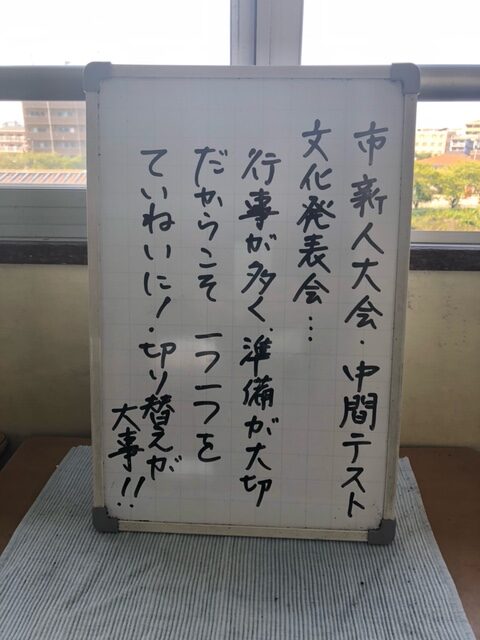 市新人大会・中間テスト
文化発表会…
行事が多く、準備が大切
だからこそ 一つ一つを
ていねいに！・切り替えが
大事!!